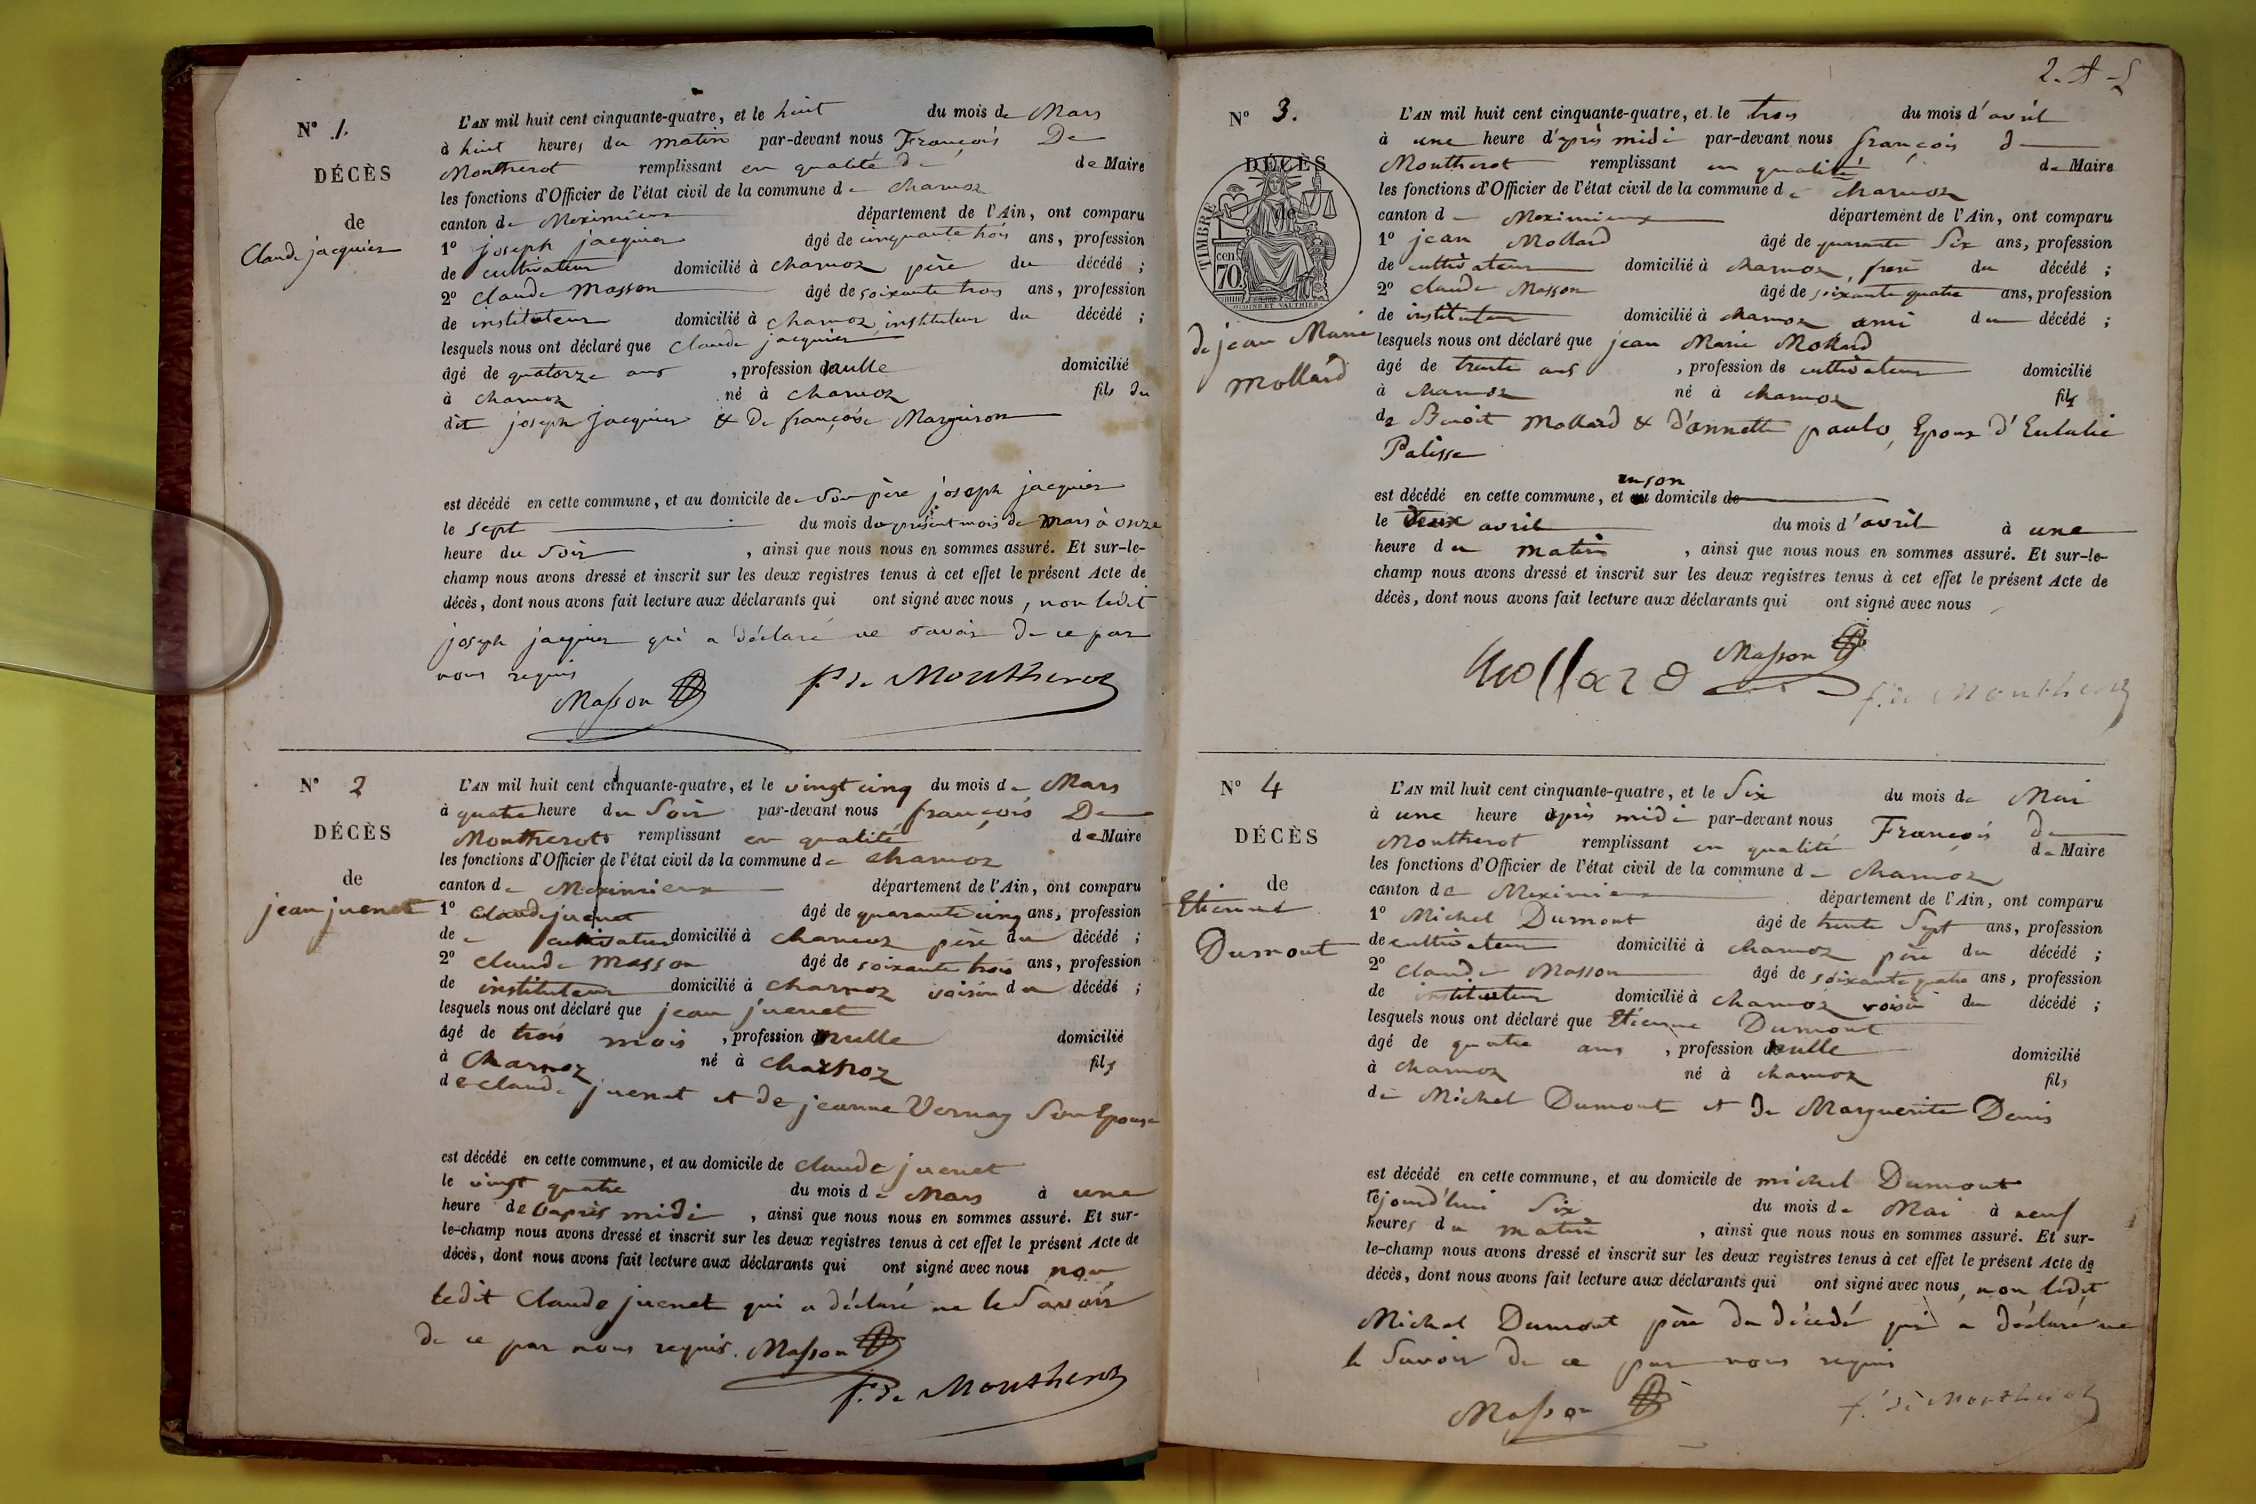 N° 1.
DÉCÈS
de
Claude jacquier
L'AN mil huit cent cinquante-quatre, et le huit du mois de Mars
à huit heures du matin par-devant nous François De
Montherot remplissant en qualité de de Maire
les fonctions d'Officier de l'état civil de la commune de charnoz
canton de Meximieux département de l'Ain, ont comparu
1° joseph jacquier âgé de cinquante trois ans, profession
de cultivateur domicilié à charnoz père du décédé ;
2° Claude Masson âgé de soixante trois ans, profession
de instituteur domicilié à charnoz instituteur du décédé ;
lesquels nous ont déclaré que Claude jacquier
âgé de quatorze ans , profession de nulle domicilié
à charnoz né à charnoz fils du
dit joseph jacquier & de françoise Marguiron
est décédé en cette commune, et au domicile de son père joseph jacquier
le sept du mois du présent mois de Mars à onze
heure du soir , ainsi que nous nous en sommes assuré. Et sur-le-
champ nous avons dressé et inscrit sur les deux registres tenus à cet effet le présent Acte de
décès, dont nous avons fait lecture aux déclarants qui ont signé avec nous, non ledit
joseph jacquier qui a déclaré ne savoir de ce par
nous requis
Masson f. de Montherot
N° 2
DÉCÈS
de
jean juenet
L'AN mil huit cent cinquante-quatre, et le vingt cinq du mois de Mars
à quatre heure du Soir par-devant nous françois De
Montherot remplissant en qualité de Maire
les fonctions d'Officier de l'état civil de la commune de charnoz
canton de Meximieux département de l'Ain, ont comparu
1° Claude juenet âgé de quarante cinq ans, profession
de cultivateur domicilié à charnoz père du décédé ;
2° claude Masson âgé de soixante trois ans, profession
de instituteur domicilié à charnoz voisin du décédé ;
lesquels nous ont déclaré que jean juenet
âgé de trois mois , profession de nulle domicilié
à Charnoz né à charnoz fils
de claude juenet et de jeanne Vernay Son Epouse
est décédé en cette commune, et au domicile de claude juenet
le vingt quatre du mois de Mars à une
heure de l'après midi , ainsi que nous nous en sommes assuré. Et sur-
le-champ nous avons dressé et inscrit sur les deux registres tenus à cet effet le présent Acte de
décès, dont nous avons fait lecture aux déclarants qui ont signé avec nous non
ledit Claude juenet qui a déclaré ne le Savoir
de ce par nous requis. Masson
f. de Montherot
N° 3.
DÉCÈS
de
TIMBRE
cen
70
de jean Marie
Mollard
L'AN mil huit cent cinquante-quatre, et le trois du mois d'avril
à une heure d'après midi par-devant nous françois de
Montherot remplissant en qualité de Maire
les fonctions d'Officier de l'état civil de la commune de charnoz
canton de Meximieux département de l'Ain, ont comparu
1° jean Mollard âgé de quarante Six ans, profession
de cultivateur domicilié à charnoz, frère du décédé ;
2° claude Masson âgé de soixante quatre ans, profession
de instituteur domicilié à charnoz ami du décédé ;
lesquels nous ont déclaré que jean Marie Mollard
âgé de trente ans , profession de cultivateur domicilié
à charnoz né à charnoz fils
de Benoit Mollard & d'annette paulo, Epoux d'Eulalie
Palisse
en son
est décédé en cette commune, et au domicile de
le deux avril du mois d'avril à une
heure du matin , ainsi que nous nous en sommes assuré. Et sur-le-
champ nous avons dressé et inscrit sur les deux registres tenus à cet effet le présent Acte de
décès, dont nous avons fait lecture aux déclarants qui ont signé avec nous
Mollard Masson f. de Montherot
N° 4
DÉCÈS
de
Etienne
Dumont
L'AN mil huit cent cinquante-quatre, et le Six du mois de Mai
à une heure après midi par-devant nous François de
Montherot remplissant en qualité de Maire
les fonctions d'Officier de l'état civil de la commune de charnoz
canton de Meximieux département de l'Ain, ont comparu
1° Michel Dumont âgé de trente Sept ans, profession
de cultivateur domicilié à charnoz père du décédé ;
2° Claude Masson âgé de soixante quatre ans, profession
de instituteur domicilié à charnoz voisin du décédé ;
lesquels nous ont déclaré que Etienne Dumont
âgé de quatre ans , profession de nulle domicilié
à charnoz né à charnoz fils
de Michel Dumont et de Marguerite Denis
est décédé en cette commune, et au domicile de michel Dumont
le jourd'hui Six du mois de Mai à neuf
heures du matin , ainsi que nous nous en sommes assuré. Et sur-
le-champ nous avons dressé et inscrit sur les deux registres tenus à cet effet le présent Acte de
décès, dont nous avons fait lecture aux déclarants qui ont signé avec nous, non ledit
Michel Dumont père du décédé qui a déclaré ne
le Savoir de ce par nous requis
Masson f. de Montherot